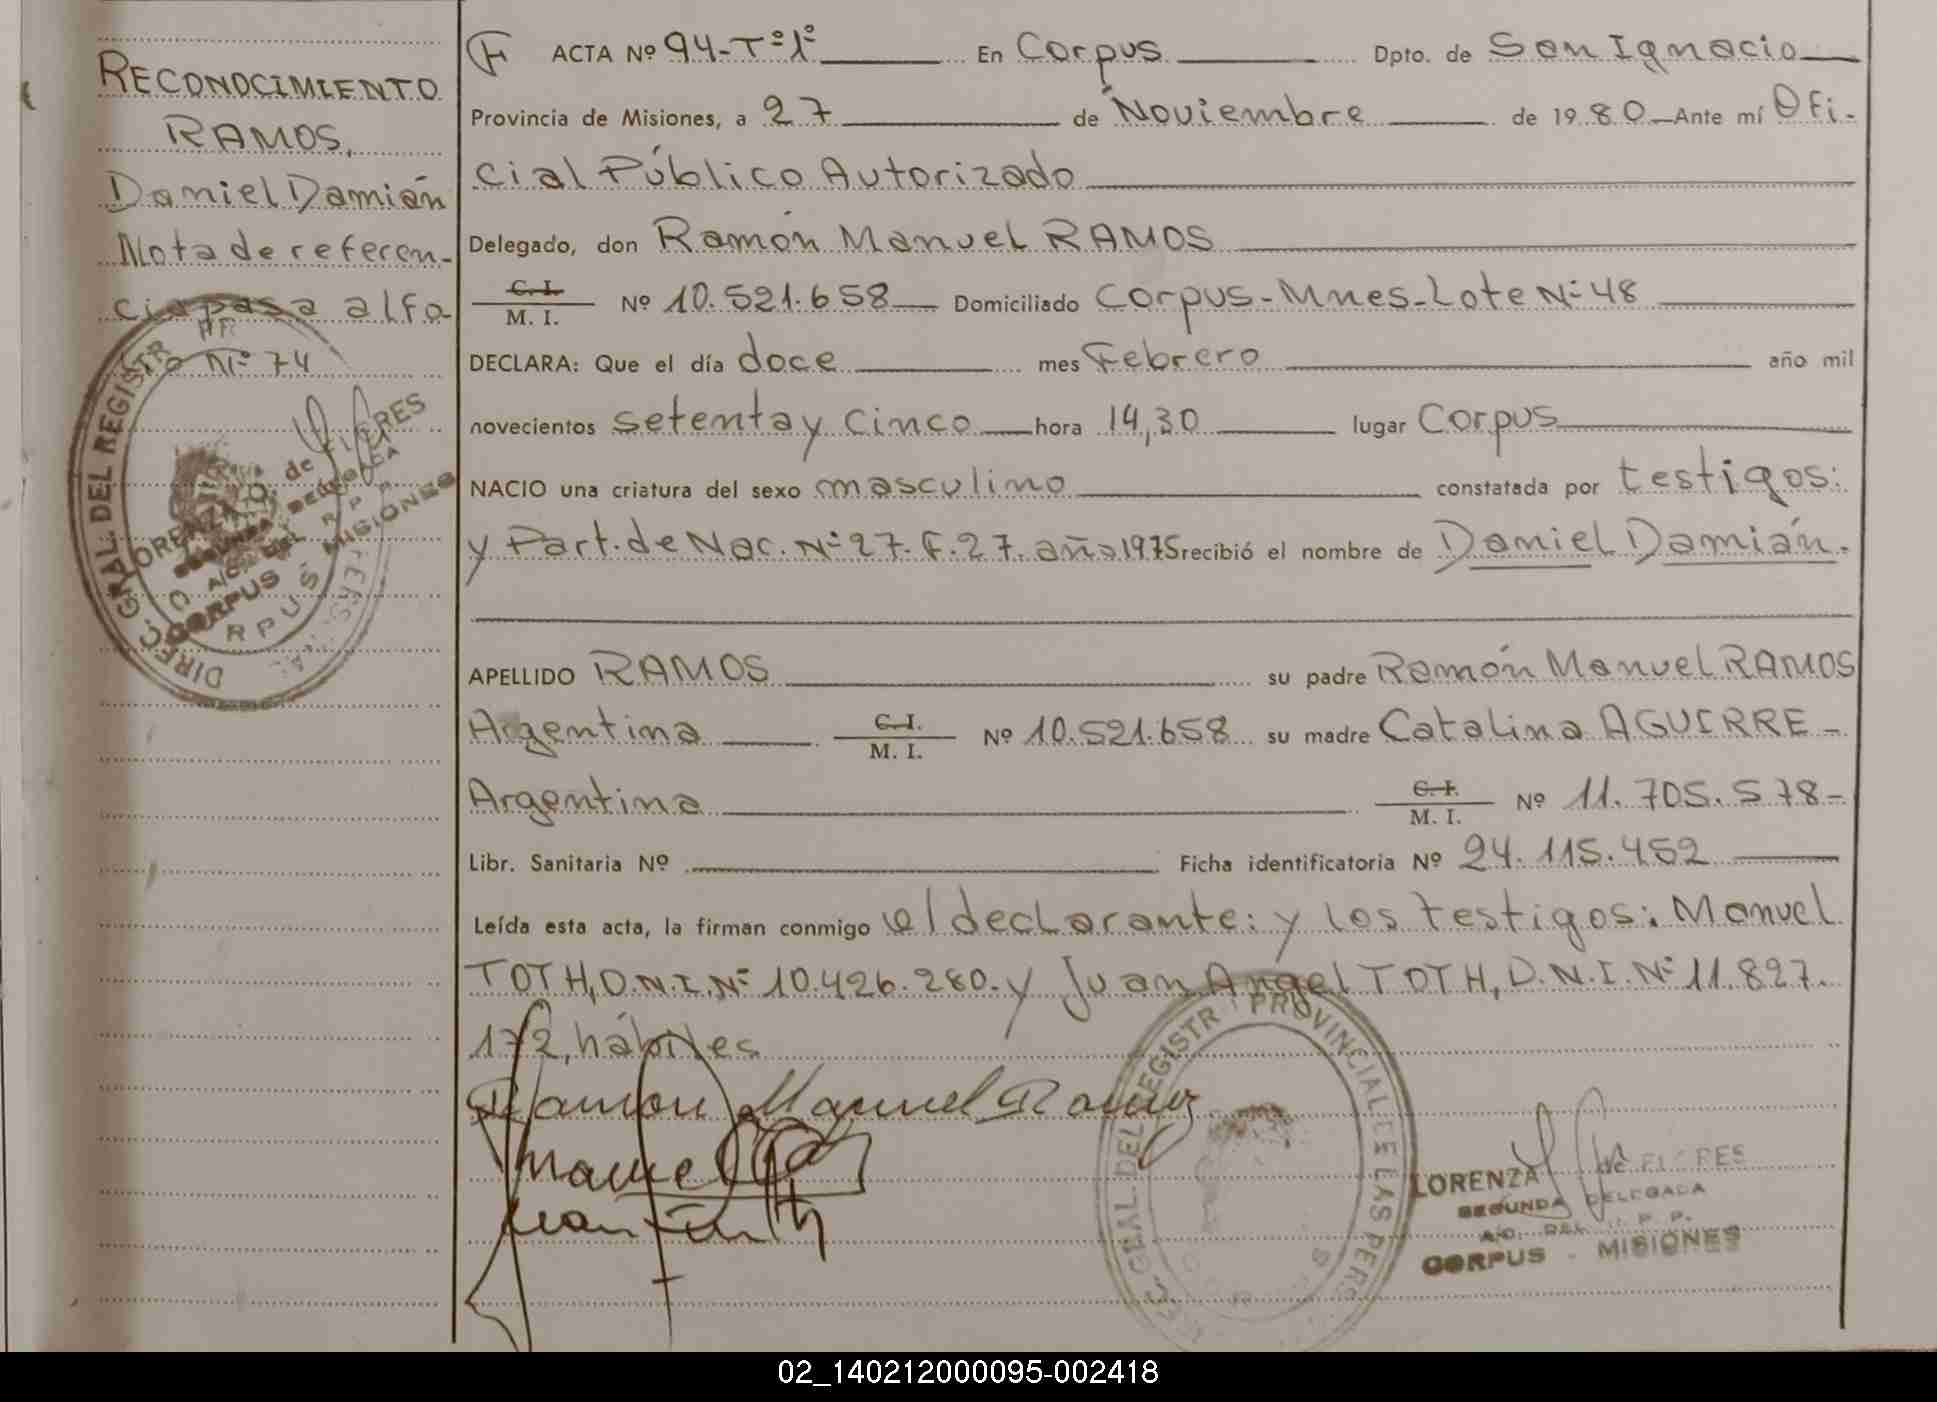 RECONOCIMIENTO
RAMOS,
Daniel Damián
Nota de referen-
cia pasa al fo-
Nº 74
ACTA Nº 94-Tº1º En Corpus Dpto. de San Ignacio
Provincia de Misiones, a 27 de Noviembre de 19 80 Ante mí Ofi-
cial Público Autorizado
Delegado, don Ramón Manuel RAMOS
C. I.
M. I. Nº 10.521.658 Domiciliado Corpus-Mnes-Lote Nº 48
DECLARA: Que el día doce mes Febrero año mil
novecientos setenta y cinco hora 14,30 lugar Corpus
NACIO una criatura del sexo masculino constatada por testigos:
y Part. de Nac. Nº 27. F. 27. año 1975 recibió el nombre de Daniel Damián.
APELLIDO RAMOS su padre Ramón Manuel RAMOS
Argentina C. I.
M. I. Nº 10.521.658 su madre Catalina AGUIRRE-
Argentina C. I.
M. I. Nº 11.705.578-
Libr. Sanitaria Nº Ficha identificatoria Nº 24.115.452
Leída esta acta, la firman conmigo el declarante: y los testigos: Manuel
TOTH, D.N.I. Nº 10.426.280. y Juan Angel TOTH, D.N.I. Nº 11.827.
172, hábiles
Ramon Manuel Ramos
DIREC. GRAL. DEL REGISTR
LORENZA de FLORES
SEGUNDA DELEGADA
CORPUS MISIONES
GRAL. DEL REGISTR PROVINCIAL DE LAS PERS
LORENZA de FLORES
SEGUNDA DELEGADA
A/C. DEL R. P. P.
CORPUS - MISIONES
02_140212000095-002418